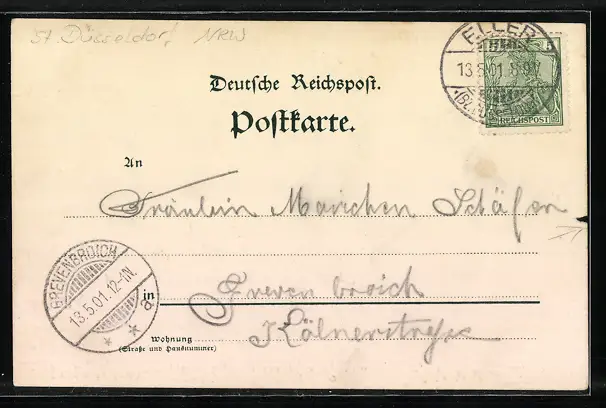 St Düsseldorf NRW
ELLER
13.5.01.8-9V
(BZ. DÜSSELDORF)
REICHSPOST
Deutsche Reichspost.
Postkarte.
An
Fräulein Mariechen Schäfer
GREVENBROICH
13.5.01.12-1N.
a
in Grevenbroich
Kölnerstrasse
Wohnung
(Straße und Hausnummer)